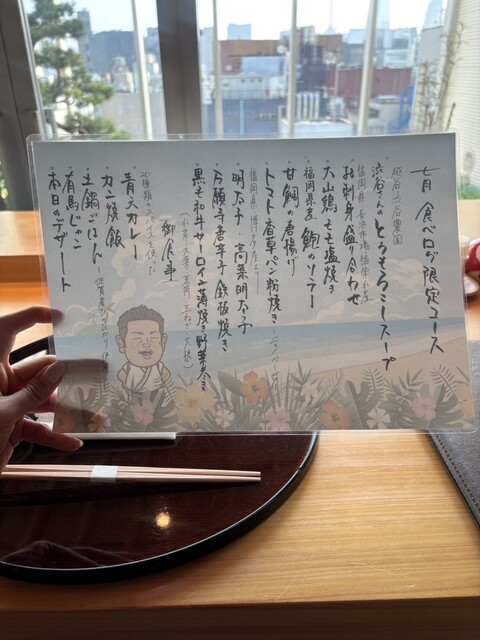 七月 食べログ限定コース
越谷 渋谷農園
渋谷さんのとうもろこしスープ
福岡県 長浜市場
お刺身盛り合わせ
大山鶏もも塩焼き
福岡県産 鮑のソテー
甘鯛の唐揚げ
トマト香草パン粉焼き
福岡県 博多
明太子 高菜明太子
万願寺唐辛子 鉄板焼き
黒毛和牛サーロイン薄焼き野菜巻き
御食事
種類のスパイスを使った
青唐カレー
カニ炒飯
土鍋ごはん
有馬じゃこ
本日のデザート